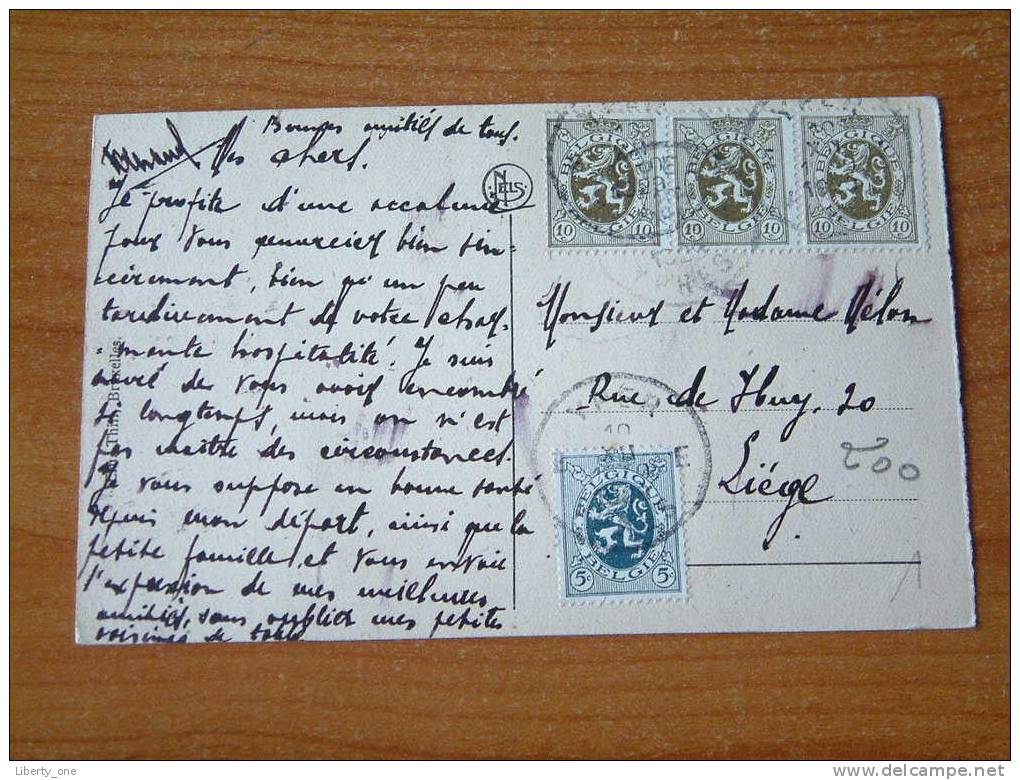 Bonnes amitiés de tous.
Mes chers.
Je profite d'une accalmie
pour vous remercier bien sin-
cèrement, bien qu'un peu
tardivement de votre char-
-mante hospitalité. Je suis
navré de vous avoir encombré
si longtemps, mais on n'est
pas maître des circonstances.
Je vous suppose en bonne santé
depuis mon départ, ainsi que la
petite famille et vous envoie
l'expression de mes meilleures
amitiés, sans oublier mes petites
voisines de table
NELS
Thill, Bruxelles.
BELGIQUE
10 10
BELGIE
BELGIQUE
10 10
BELGIE
BELGIQUE
10 10
BELGIE
Monsieur et Madame Mélon
Rue de Huy, 20
Liège
200
10
BELGIQUE
5c 5c
BELGIE
1
Liberty_one
www.delcampe.net